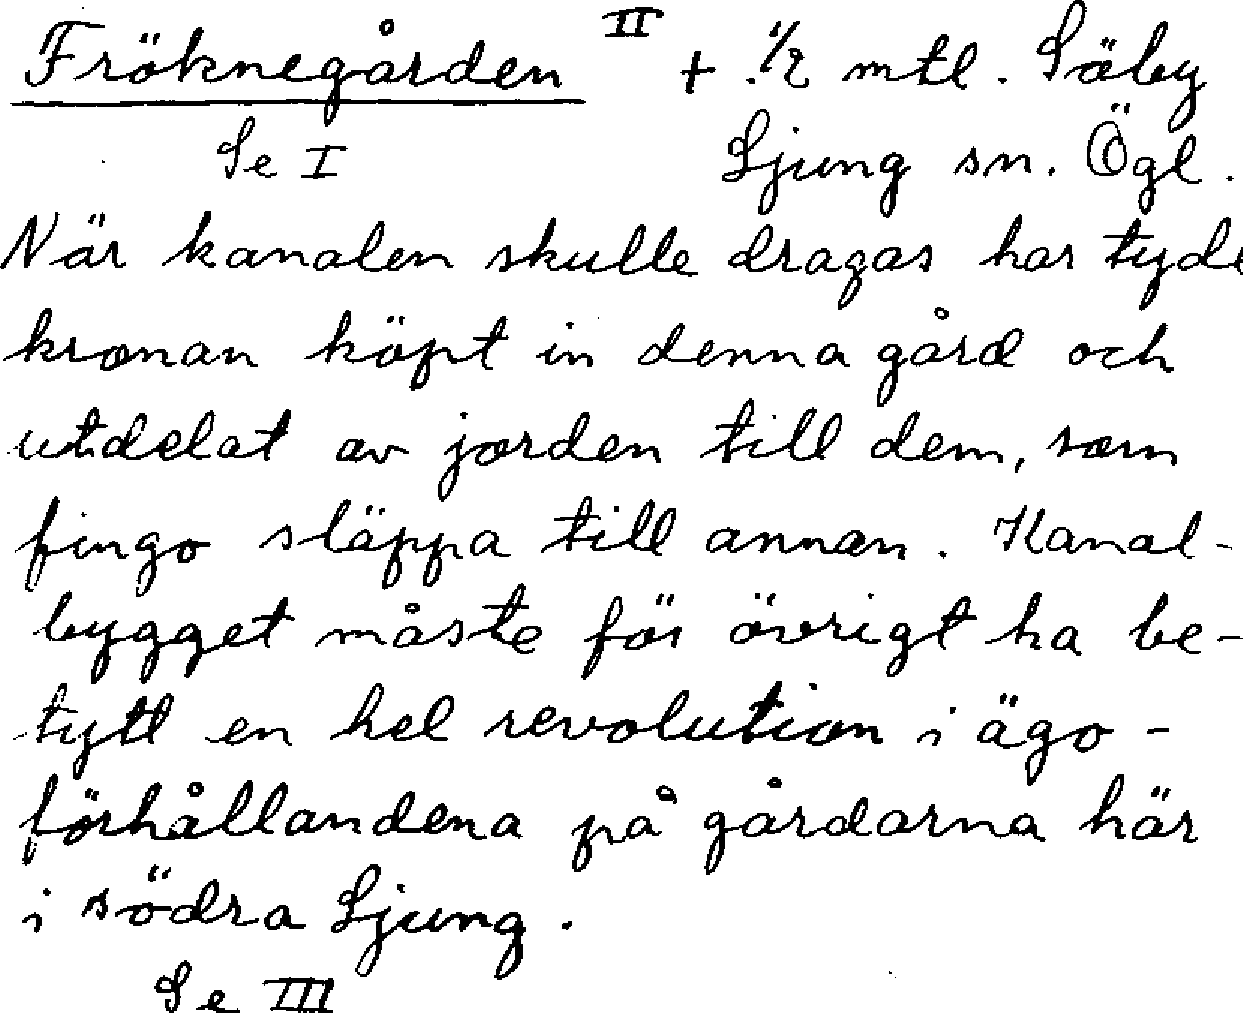 Fröknegården II + 1/2 mtl. Säby
Se I Ljung sn. Ögl.
När kanalen skulle dragas har
kronan köpt in denna gård och
utdelat av jorden till dem, som
fingo släppa till annan. Kanal-
bygget måste för övrigt ha be-
tytt en hel revolution i ägo-
förhållandena på gårdarna här
i södra Ljung.
Se III